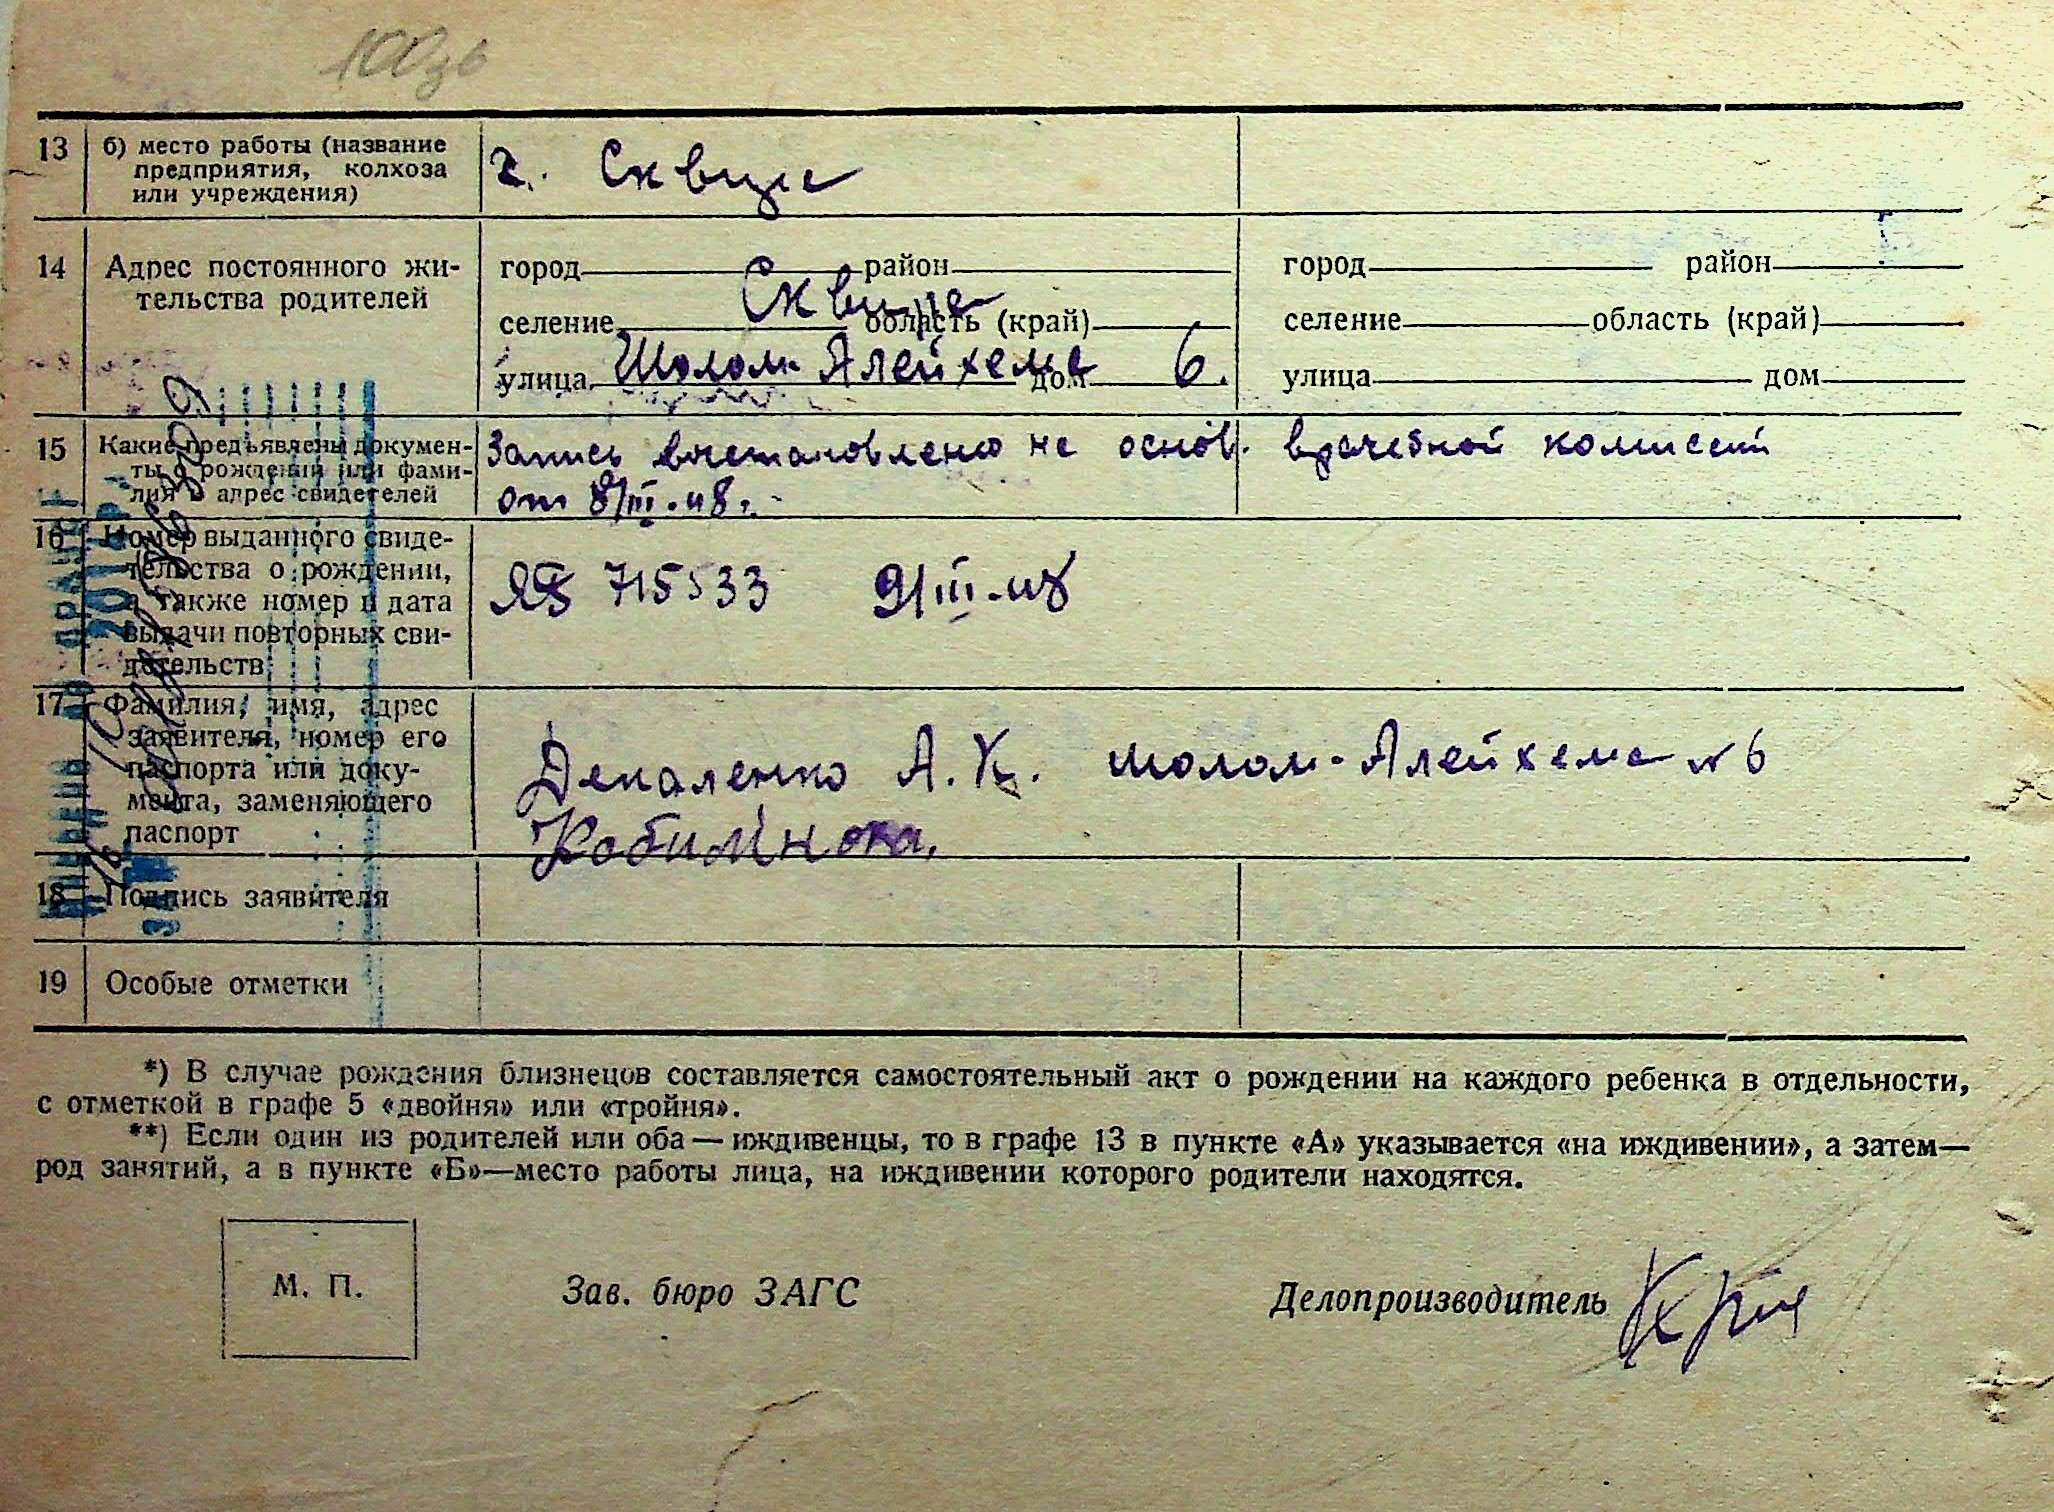 100зв
13 б) место работы (название
предприятия, колхоза
или учреждения)
г. Сквира
14 Адрес постоянного жи-
тельства родителей
город район
Сквира
селение область (край)
улица Шолом-Алейхема дом 6.
город район
селение область (край)
улица дом
15 Какие предъявлены докумен-
ты о рождении или фами-
лия и адрес свидетелей
Запись востановлено на основ. врачебной комиссии
от 8/III.48г.
16 Номер выданного свиде-
тельства о рождении,
а также номер и дата
выдачи повторных сви-
детельств
715533 9/III.48
17 Фамилия, имя, адрес
заявителя, номер его
паспорта или доку-
мента, заменяющего
паспорт
А. К. Шолом-Алейхема №6
18 Подпись заявителя
19 Особые отметки
*) В случае рождения близнецов составляется самостоятельный акт о рождении на каждого ребенка в отдельности,
с отметкой в графе 5 «двойня» или «тройня».
**) Если один из родителей или оба — иждивенцы, то в графе 13 в пункте «А» указывается «на иждивении», а затем—
род занятий, а в пункте «Б»—место работы лица, на иждивении которого родители находятся.
М. П.
Зав. бюро ЗАГС
Делопроизводитель